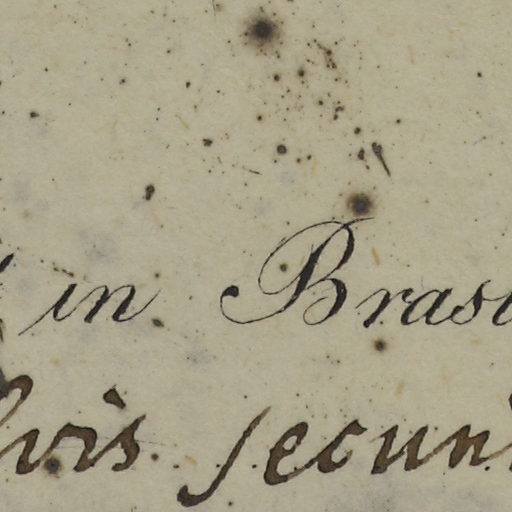 in Brasi
lvis secund